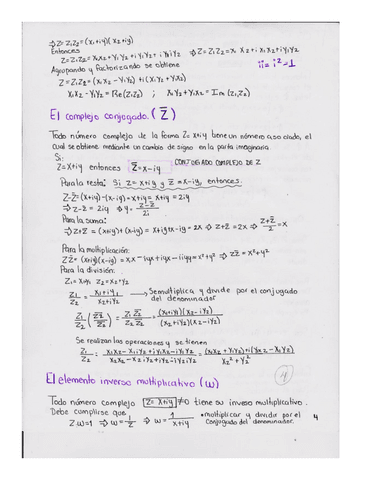 ⇒ Z = Z₁Z₂ = (x₁+iy₁)(x₂+iy)
Entonces
Z = Z₁Z₂ = x₁x₂ + y₁y₂ + iy₁y₂ + iy₁iy₂ ⇒ Z = Z₁Z₂ = x₁x₂ + i x₁x₂ + iy₁iy₂
Agrupando y Factorizando se obtiene ii = i² = -1
Z = Z₁Z₂ = (x₁x₂ - y₁y₂) + i(x₁y₂ + y₁x₂)
x₁x₂ - y₁y₂ = Re(Z₁Z₂) ; x₁y₂ + y₁x₂ = Im(Z₁Z₂)
El complejo conjugado. (Z̅)
Todo número complejo de la forma Z = x+iy tiene un número asociado, el
cual se obtiene mediante un cambio de signo en la parte imaginaria.
Si:
Z = x+iy entonces Z̅ = x-iy CONJUGADO COMPLEJO DE Z
Para la resta: Si z = x+iy y z̅ = x-iy, entonces.
Z-Z̅ = (x+iy) - (x-iy) = x+iy - x+iy = 2iy
⇒ Z-Z̅ = 2iy ⇒ y = (Z-Z̅)/2i
Para la suma:
⇒ Z+Z̅ = (x+iy) + (x-iy) = x+iy+x-iy = 2x ⇒ Z+Z̅ = 2x ⇒ (Z+Z̅)/2 = x
Para la multiplicación:
ZZ̅ = (x+iy)(x-iy) = x·x - iyx + iyx - iiyy = x²+y² ⇒ ZZ̅ = x²+y²
Para la división:
Z₁ = x₁+iy₁ Z₂ = x₂+iy₂
Z₁/Z₂ = (x₁+iy₁)/(x₂+iy₂) → Se multiplica y divide por el conjugado
del denominador
Z₁/Z₂ (Z̅₂/Z̅₂) = Z₁Z̅₂/Z₂Z̅₂ = (x₁+iy₁)(x₂-iy₂)/(x₂+iy₂)(x₂-iy₂)
Se realizan las operaciones y se tienen
Z₁/Z₂ = (x₁x₂ - x₁iy₂ + iy₁x₂ - iy₁iy₂)/(x₂x₂ - x₂iy₂ + iy₂x₂ - iy₂iy₂) = ((x₁x₂ + y₁y₂) + i(y₁x₂ - x₁y₂))/(x₂² + y₂²)
El elemento inverso multiplicativo (ω)
4
Todo número complejo Z = x+iy ≠ 0 tiene su inverso multiplicativo.
Debe cumplirse que • multiplicar y dividir por el
Z·ω = 1 ⇒ ω = 1/Z ⇒ ω = 1/(x+iy) conjugado del denominador.
4